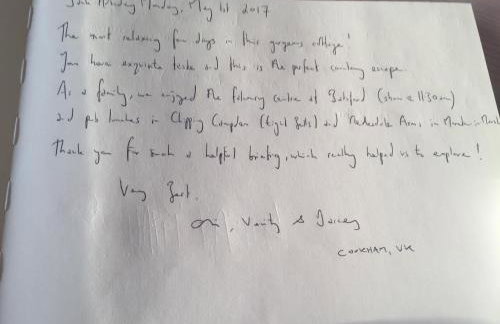 Bank Holiday Monday, May 1st 2017
The most relaxing few days in this gorgeous cottage!
You have exquisite taste and this is the perfect country escape.
As a family, we enjoyed the falconry centre at Batsford (show @ 11:30am)
and pub lunches in Chipping Campden (Eight Bells) and Redesdale Arms in Moreton in Marsh
Thank you for such a helpful briefing, which really helped us to explore!
Very Best,
&
COOKHAM, UK